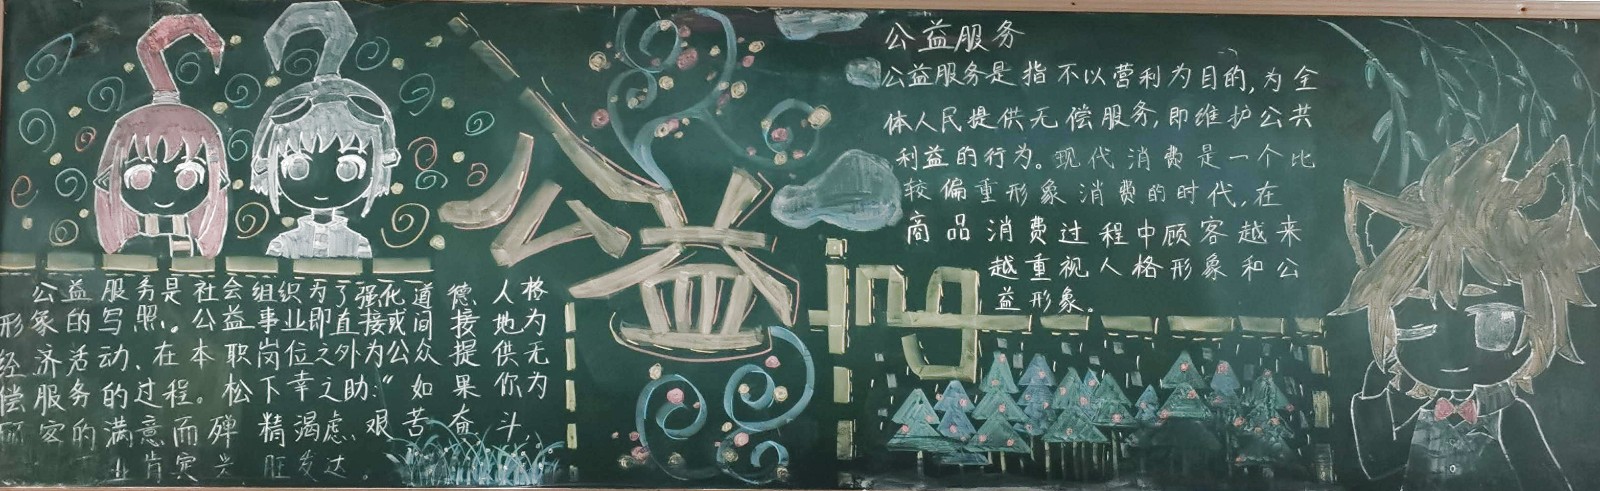 公益服务是社会组织为了强化道德人格
形象的写照。公益事业即直接或间接地为
经济活动、在本职岗位之外为公众提供无
偿服务的过程。松下幸之助:“如果你为
顾客的满意而殚精竭虑、艰苦奋斗,
业肯定兴旺发达。
公益
ing
公益服务
公益服务是指不以营利为目的,为全
体人民提供无偿服务,即维护公共
利益的行为。现代消费是一个比
较偏重形象消费的时代,在
商品消费过程中顾客越来
越重视人格形象和公
益形象。